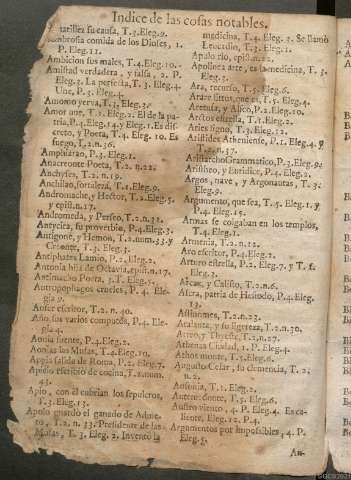 Indice de las cosas notables.
tarillez su causa, T.3. Eleg.9.
Ambrosia comida de los Dioses, 1.
P. Eleg.11.
Ambicion sus males, T.4. Eleg.10.
Amistad verdadera, y falsa, 2. P.
Eleg.3. La perfecta, T.3. Eleg.4
Une, P.3. Eleg.4.
Amomo yerva, T.3. Eleg.3.
Amor une, T.2. Eleg.2. El de la pa-
tria, P.4. Eleg.14. y Eleg.1. Es dis-
creto, y Poeta, T.4. Eleg. 10. Es
fuego, T.2. n.36.
Amphiarao, P.3. Eleg.1.
Anacreonte Poeta, T.2. n.22.
Anchyses, T.2. n.19.
Anchilao, fortaleza, T.1. Eleg.9.
Andromache, y Hector, T.2. Eleg.5.
y epist. n.17.
Andromeda, y Perseo, T.2. n.32.
Antycira, su proverbio, P.4. Eleg.3.
Antigone, y Hemon, T.2. num.33. y
Creonte, T.3. Eleg.3.
Antiphates Lamio, P.2. Eleg.2.
Antonia hija de Octavia, epist. n.17.
Antimacho Poeta, T.1. Eleg.5.
Antropophagos crueles, P.4. Ele-
gia 9.
Anser escritor, T.2. n.40.
Año sus varios computos, P.4. Ele-
gia 4.
Aonia fuente, P.4. Eleg.2.
Aonias las Musas, T.4. Eleg.10.
Appia salida de Roma, P.2. Eleg.7.
Apicio escribiò de cocina, T.2. num.
43.
Apio, con èl cubrian los sepulcros,
T.3. Eleg.13.
Apolo guardò el ganado de Adme-
to, T.2. n. 33. Presidente de las
Musas, T.3. Eleg.2. Inventò la
medicina, T.4. Eleg.3. Se llamò
Leucadio, T.3. Eleg.1.
Apulo rio, epist. n.12.
Apolinea arte, es la medicina, T.3.
Eleg.3.
Ara, recurso, T.5. Eleg.6.
Arare littus, que es, T.5. Eleg.4.
Aretusa, y Alfeo, P.2. Eleg.10.
Arctos estrella, T.1. Eleg.2.
Aries signo, T.3. Eleg.12.
Aristides Atheniense, P.1. Eleg.4. y
T.2. n.37.
Aristarcho Grammatico, P.3. Eleg.9.
Aristheo, y Euridice, P.4. Eleg.2.
Argos, nave, y Argonautas, T.3.
Eleg.9.
Argumento, que sea, T.5. Eleg.1. y
P.4. Eleg.15.
Armas se colgaban en los templos,
T.4. Eleg.1.
Armenia, T.2. n.12.
Aro escritor, P.4. Eleg.2.
Arturo estrella, P.2. Eleg.7. y T.1.
Eleg.3.
Arcas, y Calisto, T.2. n.6.
Ascra, patria de Hesiodo, P.4. Eleg.
13.
Assiannes, T.2. n.23.
Atalanta, y su ligereza, T.2. n.30.
Atreo, y Thyeste, T.2. n.27.
Athenas Ciudad, 1. P. Eleg.4.
Athos monte, T.5. Eleg.6.
Augusto Cesar, su clemencia, T. 2.
n.2.
Ausonia, T.1. Eleg.2.
Austro viento, 4. P. Eleg.4. Es ca-
liente, Eleg.12. P.4.
Argumentos por impossibles, 4. P.
Eleg.5.
An-